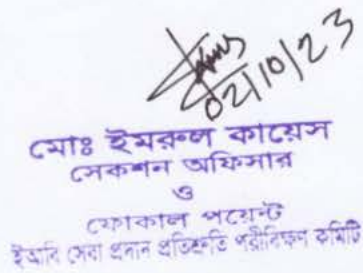 02/10/23
মোঃ ইমরুল কায়েস
সেকশন অফিসার
ও
ফোকাল পয়েন্ট
সেবা প্রদান প্রতিশ্রুতি পরিবীক্ষণ কমিটি